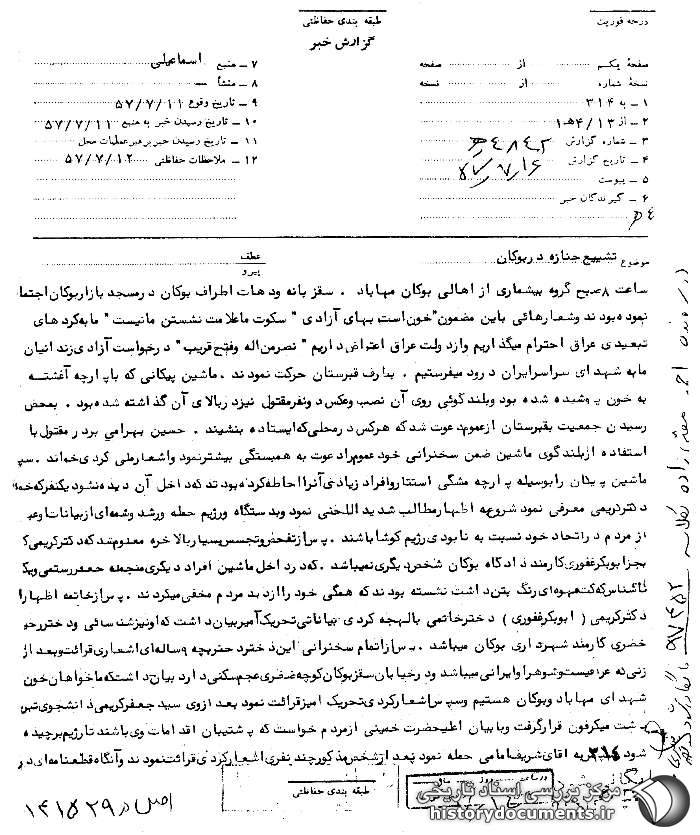 درجه فوریت
طبقه بندی حفاظتی
گزارش خبر
صفحهٔ یکم از صفحه
نسخهٔ شماره از نسخه
۱ ــ به ۳۱۴
۲ ــ از ۴/۱۳ هـ۱
۳ ــ شماره گزارش
۴ ــ تاریخ گزارش
۵ ــ پیوست
۶ ــ گیرندگان خبر
۷ ــ منبع اسماعیلی
۸ ــ منشأ
۹ ــ تاریخ وقوع ۵۷/۷/۱۱
۱۰ ــ تاریخ رسیدن خبر به منبع ۵۷/۷/۱۱
۱۱ ــ تاریخ رسیدن خبر برهبر عملیات محل
۱۲ ــ ملاحظات حفاظتی ۵۷/۷/۱۲
موضوع تشییع جنازه در بوکان
عطف
پیرو
ساعت ۸ صبح گروه بیشماری از اهالی بوکان مهاباد . سقز بانه ودهات اطراف بوکان در مسجد بازار بوکان اجتما
نموده بودند وشعارهائی باین مضمون "خون است بهای آزادی" سکوت ما علامت نشستن ما نیست" ما به کردهای
تبعیدی عراق احترام میگذاریم وازدولت عراق اعتراض داریم "نصر من اله وفتح قریب" درخواست آزادی زندانیان
ما به شهدای سراسر ایران درود میفرستیم . بطرف قبرستان حرکت نمودند . ماشین پیکانی که با پارچه آغشته
به خون پوشیده شده بود وبلندگوئی روی آن نصب وعکس دونفر مقتول نیز در بالای آن گذاشته شده بود . بمحض
رسیدن جمعیت بقبرستان از عموم دعوت شد که هرکس در محلی که ایستاده بنشیند . حسین بهرامی برادر مقتول با
استفاده از بلندگوی ماشین ضمن سخنرانی خود عموم را دعوت به همبستگی بیشتر نمود واشعار ملی کردی خواند . سپ
ماشین پیکان را بوسیله پارچه مشگی استتار وافراد زیادی آنرا احاطه کرده بودند که داخل آن دیده نشود یکنفر که خود
دکتر کریمی معرفی نمود شروع به اظهار مطالب شدید اللحنی نمود وبدستگاه ورژیم حمله ور شد وشمه ای از بیانات وعد
از مردم در اتحاد خود نسبت به نابودی رژیم کوشا باشند . پس از تفحص وتجسس بسیار بالاخره معلوم شد که دکتر کریمی ک
بجز ابوبکر غفوری کارمند دادگاه بوکان شخص دیگری نمیباشد . که در داخل ماشین افراد دیگری منجمله جعفر رستمی ویک
ناشناس که کت قهوه ای رنگ بتن داشت نشسته بودند که همگی خود را از دید مردم مخفی میکردند . پس از خاتمه اظهارا
دکتر کریمی ( ابوبکر غفوری ) دختر خانمی بالهجه کردی بیاناتی تحریک آمیز بیان داشت که او نیز شناسائی ودختر رح
خضری کارمند شهرداری بوکان میباشد . پس از اتمام سخنرانی این دختر دختر بچه ساله ای اشعاری قرائت وبعد از
زنی که عرب نیست وشوهر او ایرانی میباشد ودر خیابان سقز بوکان کوچه غضنفری عجم سکنی دارد بیان داشت که ما خواهان خون
شهدای مهاباد وبوکان هستیم وسپس اشعار کردی تحریک آمیز قرائت نمود بعد از وی سید جعفر کریمی دانشجوی تبر
پشت میکروفن قرار گرفت وبا بیان اعلیحضرت خمینی از مردم خواست که پشتیبان اقدامات وی باشند تا رژیم برچیده
شود به اقای شریف امامی حمله نمود بعد از شخص مذکور چند نفری اشعار کردی قرائت نمودند وآنگاه قطعنامه ای در
طبقه بندی حفاظتی
مرکز بررسی اسناد تاریخی
historydocuments.ir